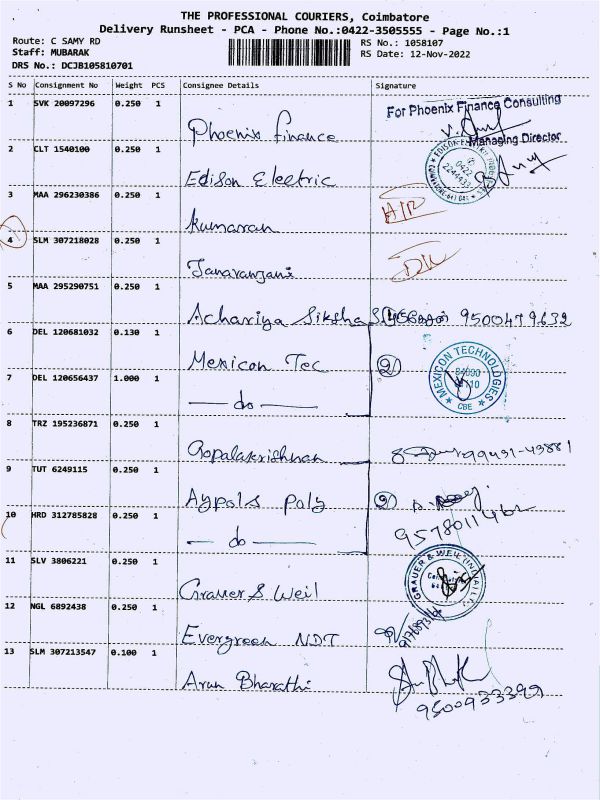 THE PROFESSIONAL COURIERS, Coimbatore
Delivery Runsheet - PCA - Phone No.:0422-3505555 - Page No.:1
Route: C SAMY RD
RS No.: 1058107
Staff: MUBARAK
RS Date: 12-Nov-2022
DRS No.: DCJB105810701
S No Consignment No Weight PCS Consignee Details Signature
1 SVK 20097296 0.250 1 Phoenix finance For Phoenix Finance Consulting
Managing Director
2 CLT 1540100 0.250 1 Edison Electric
3 MAA 296230386 0.250 1 Kumaran
4 SLM 307218028 0.250 1 Janaranjani
5 MAA 295290751 0.250 1 Achariya Siksha 9500479632
6 DEL 120681032 0.130 1 Mexicon Tec 2 MEXICON TECHNOLOGIES CBE
7 DEL 120656437 1.000 1 — do —
8 TRZ 195236871 0.250 1 Gopalakrishnan 99431-43881
9 TUT 6249115 0.250 1 Aypols poly 2
10 HRD 312785828 0.250 1 — do — 9578011462
11 SLV 3806221 0.250 1 Grauer & Weil GRAUER & WEIL (INDIA) LTD
12 NGL 6892438 0.250 1 Evergreen NDT
13 SLM 307213547 0.100 1 Arun Bharathi
9500933399